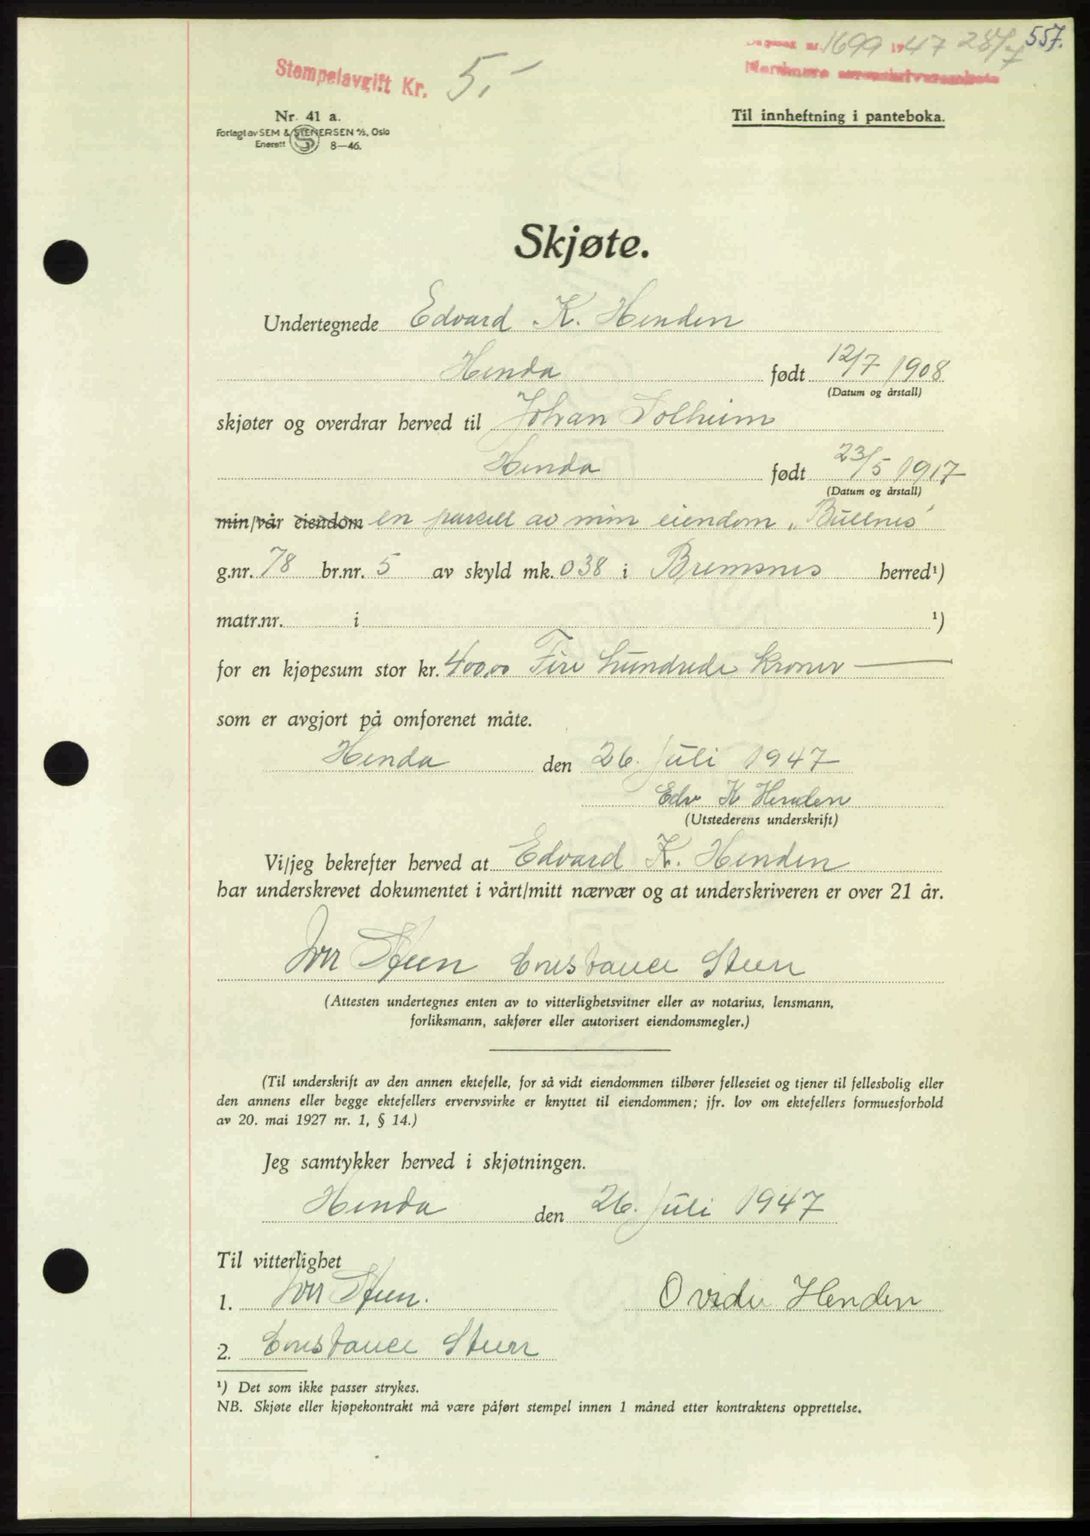 557.
1699 1947 28/7
Stempelavgift Kr. 5,-
Nordmøre sorenskriverembete
Nr. 41 a.
Forlagt av SEM & STENERSEN A/S, Oslo
Enerett 8—46.
Til innheftning i panteboka.
Skjøte.
Undertegnede Edvard K. Henden
Henda født 12/7 1908
(Datum og årstall)
skjøter og overdrar herved til Johan Solheim
Henda født 23/5 1917
(Datum og årstall)
min/vår eiendom en parsell av min eiendom „Bullnes"
g.nr. 78 br.nr. 5 av skyld mk. 038 i Bremsnes herred¹)
matr.nr. i ¹)
for en kjøpesum stor kr. 400,00 Fire hundrede kroner
som er avgjort på omforenet måte.
Henda den 26. juli 1947
Edv K Henden
(Utstederens underskrift)
Vi/jeg bekrefter herved at Edvard K. Henden
har underskrevet dokumentet i vårt/mitt nærvær og at underskriveren er over 21 år.
Iver Steen Constance Steen
(Attesten undertegnes enten av to vitterlighetsvitner eller av notarius, lensmann,
forliksmann, sakfører eller autorisert eiendomsmegler.)
(Til underskrift av den annen ektefelle, for så vidt eiendommen tilhører felleseiet og tjener til fellesbolig eller
den annens eller begge ektefellers ervervsvirke er knyttet til eiendommen; jfr. lov om ektefellers formuesforhold
av 20. mai 1927 nr. 1, § 14.)
Jeg samtykker herved i skjøtningen.
Henda den 26. juli 1947
Til vitterlighet
1. Iver Steen. Henden
2. Constance Steen
¹) Det som ikke passer strykes.
NB. Skjøte eller kjøpekontrakt må være påført stempel innen 1 måned etter kontraktens opprettelse.